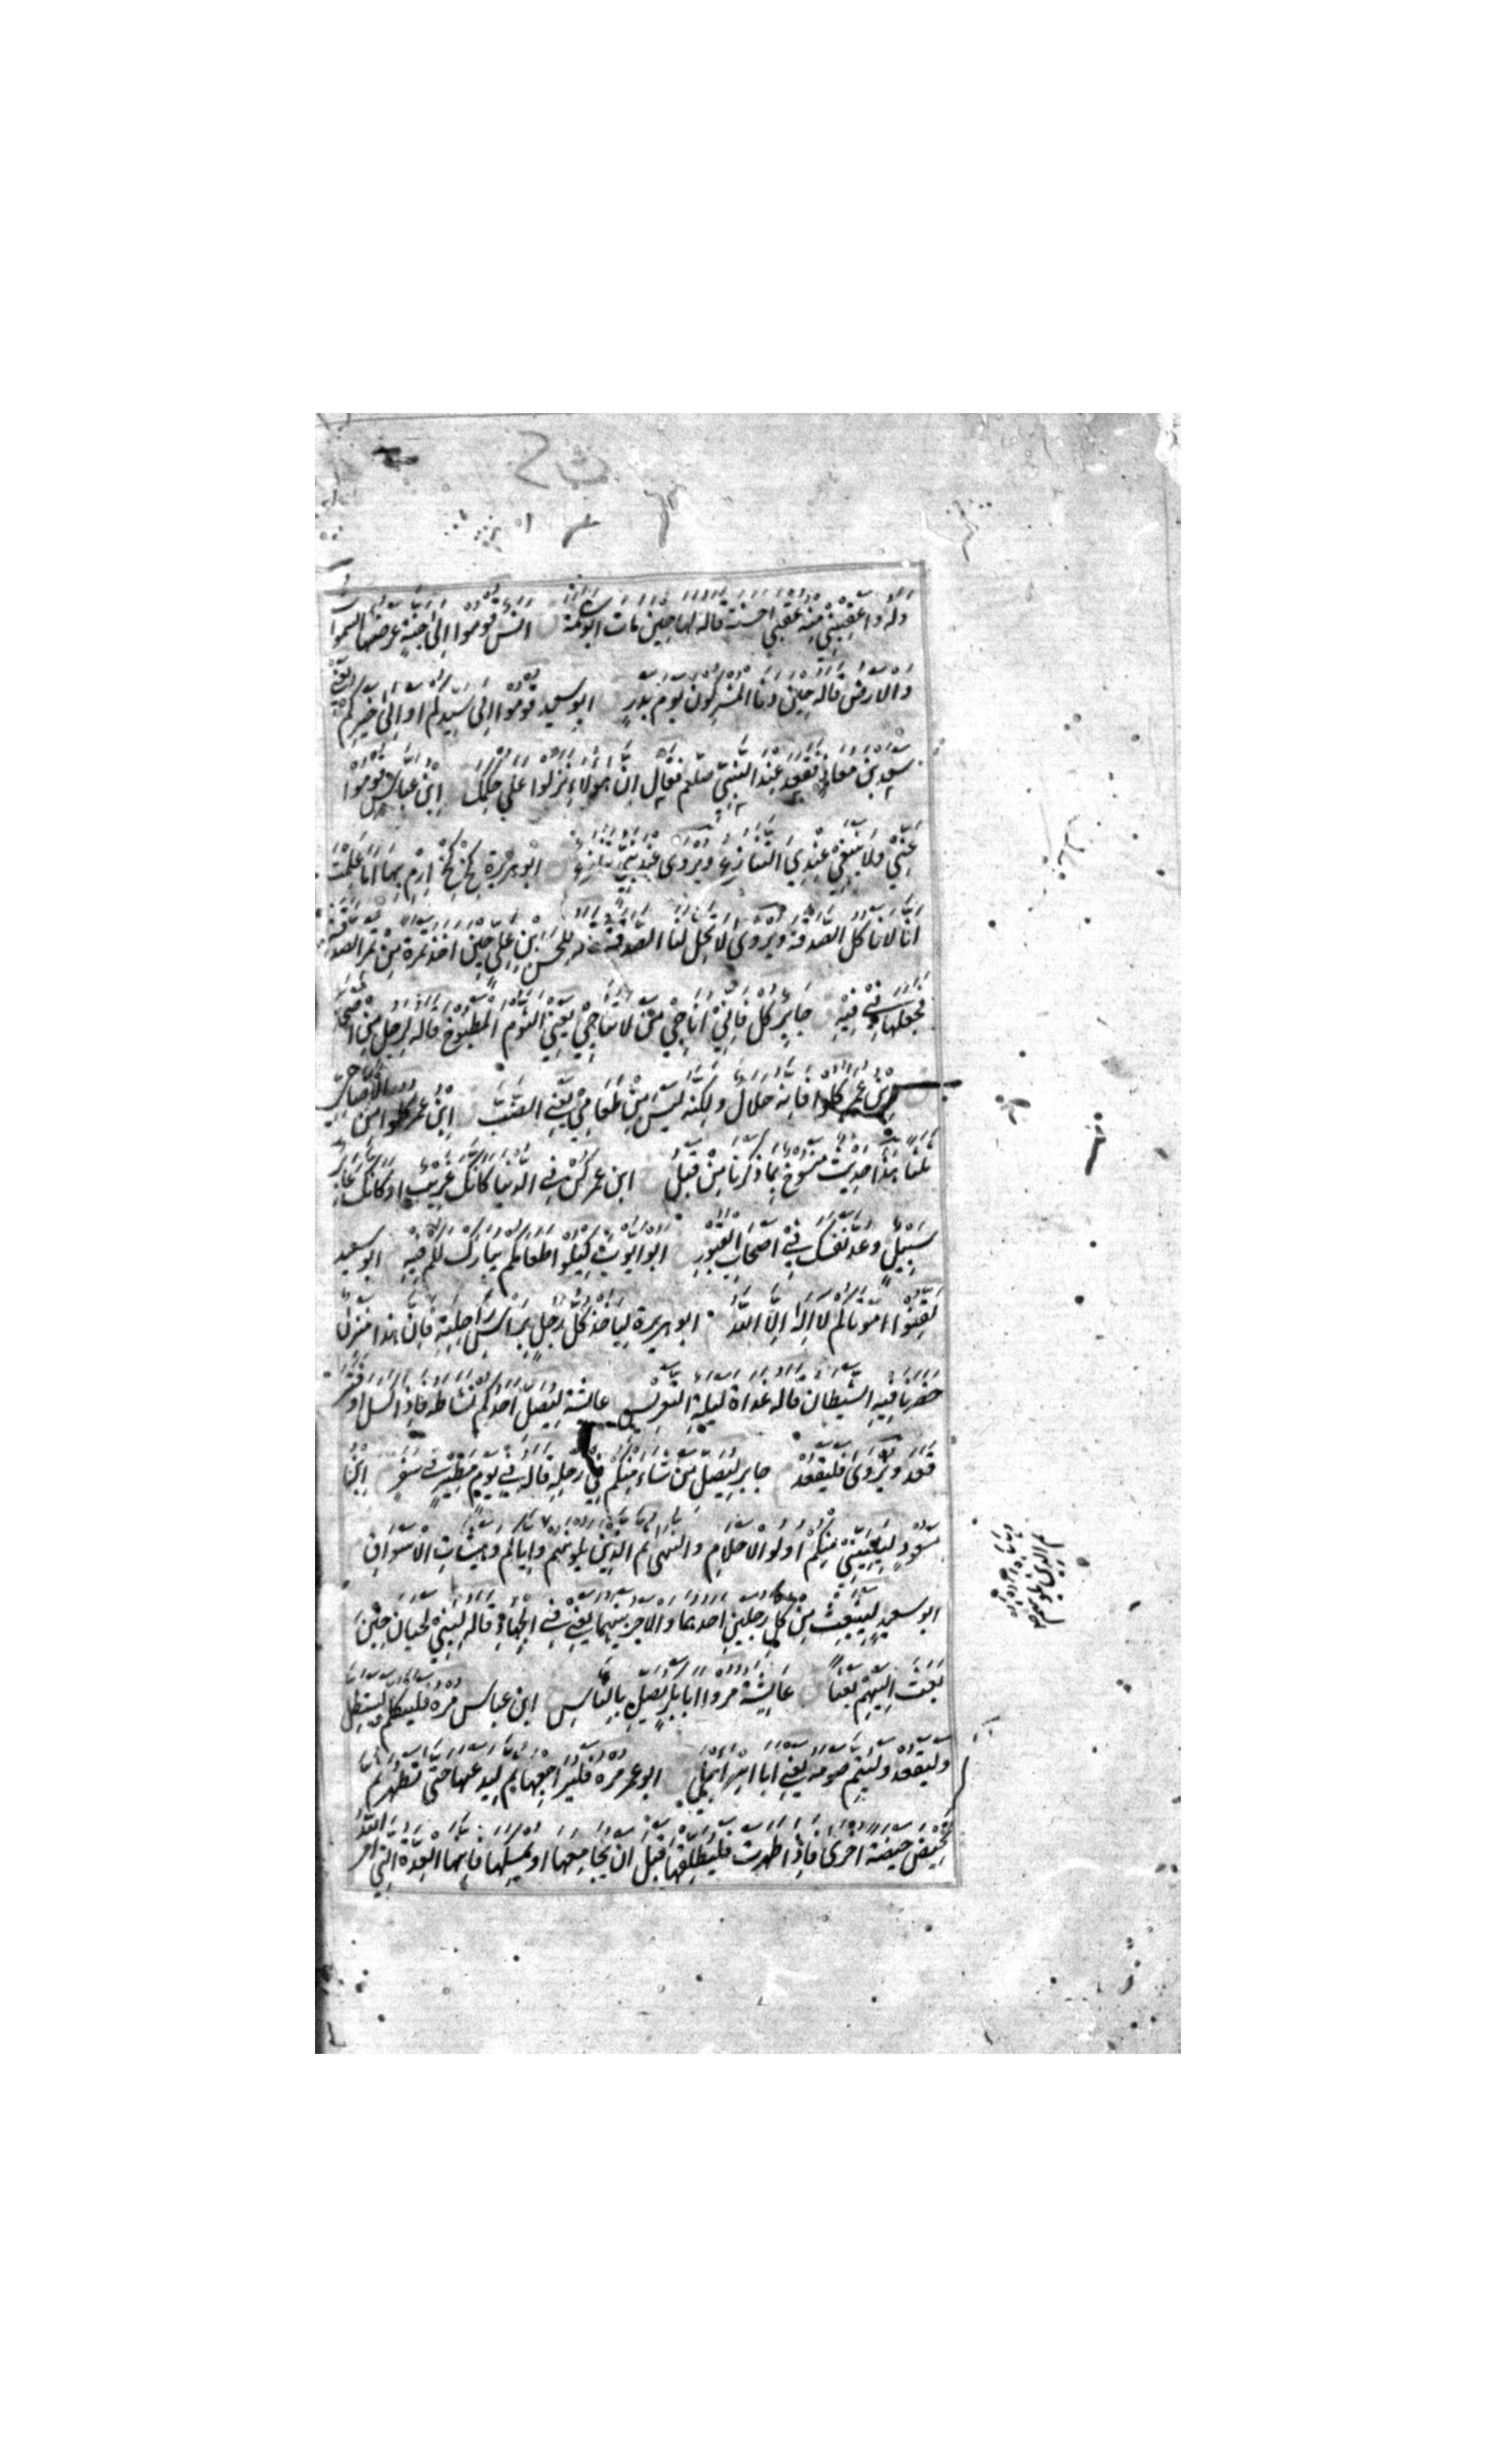 وله واعقبني منه عقبى حسنة قاله لها حين مات ابو سلمة انس قوموا الى جنة عرضها السموا
والارض قاله حين دنا المشركون يوم بدر ابو سعيد قوموا الى سيدكم او الى خيركم يعني
سعد بن معاذ فقعد عند النبي صلعم فقال ان هولاء نزلوا على حكمك ابن عباس قوموا
عني ولا ينبغي عندي التنازع ويروى عند نبي تنازع ابو هريرة كخ كخ ارم بها اما علمت
انا لا ناكل الصدقة ويروى لا تحل لنا الصدقة قاله للحسن بن علي حين اخذ تمرة من تمر الصدقة
فجعلها في فيه جابر كل فاني اناجي من لا تناجي يعني الثوم المطبوخ قاله لرجل من اصحابه
ابن عمر كلوا فانه حلال ولكنه ليس من طعامي يعني الضب ابن عمر كلوا من الاضاحي
ثلثا هذا حديث منسوخ بما ذكرنا من قبل ابن عمر كن في الدنيا كانك غريب او كانك عابر
سبيل وعد نفسك في اصحاب القبور ابو ايوب كيلوا طعامكم يبارك لكم فيه ابو سعيد
لقنوا امواتكم لا اله الا الله ابو هريرة لياخذ كل رجل براس راحلته فان هذا منزل
حضرنا فيه الشيطان قاله غداة ليلة التعريس عائشة ليصل احدكم نشاطه فاذا كسل او فتر
قعد ويروى فليقعد جابر ليصل من شاء منكم في رحله قاله في يوم مطير في سفر ابن
مسعود ليليني منكم اولوا الاحلام والنهى ثم الذين يلونهم واياكم وهيشات الاسواق
ابو سعيد لينبعث من كل رجلين احدهما والاجر بينهما يعني في الجهاد قاله لبني لحيان حين
بعث اليهم بعثا عائشة مروا ابا بكر يصل بالناس ابن عباس مره فليتكلم وليستظل
وليقعد وليتم صومه يعني ابا اسرائيل ابو عمر مره فليراجعها ثم ليدعها حتى تطهر ثم
تحيض حيضة اخرى فاذا طهرت فليطلقها قبل ان يجامعها او يمسكها فانها العدة التي امر الله
ثم الذين يلونهم